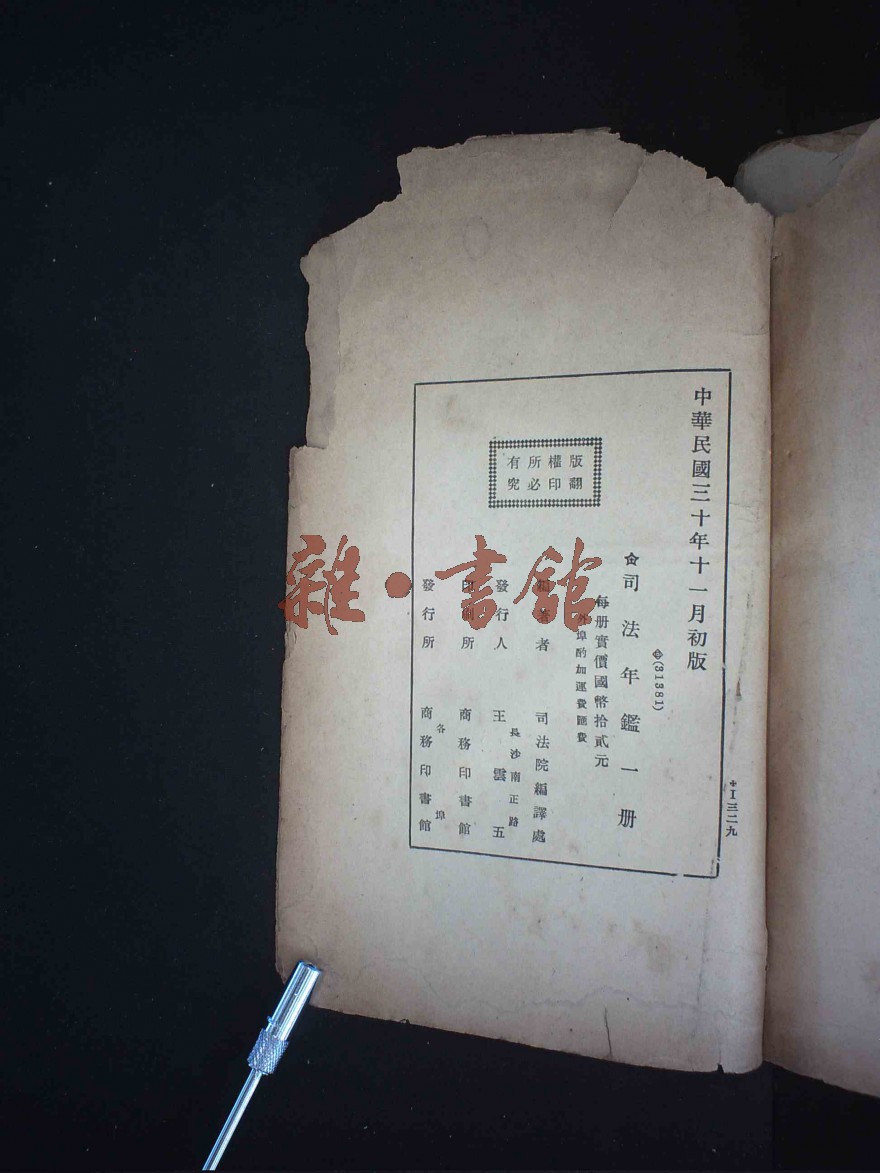 中華民國三十年十一月初版
(31381)
司法年鑑一册
每册實價國幣拾貳元
外埠酌加運費匯費
版權所有
翻印必究
編著者 司法院編譯處
長沙南正路
發行人 王雲五
印刷所 商務印書館
各埠
發行所 商務印書館
I三二九
雜·書館